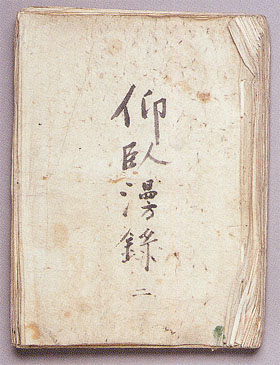 仰臥漫録
二